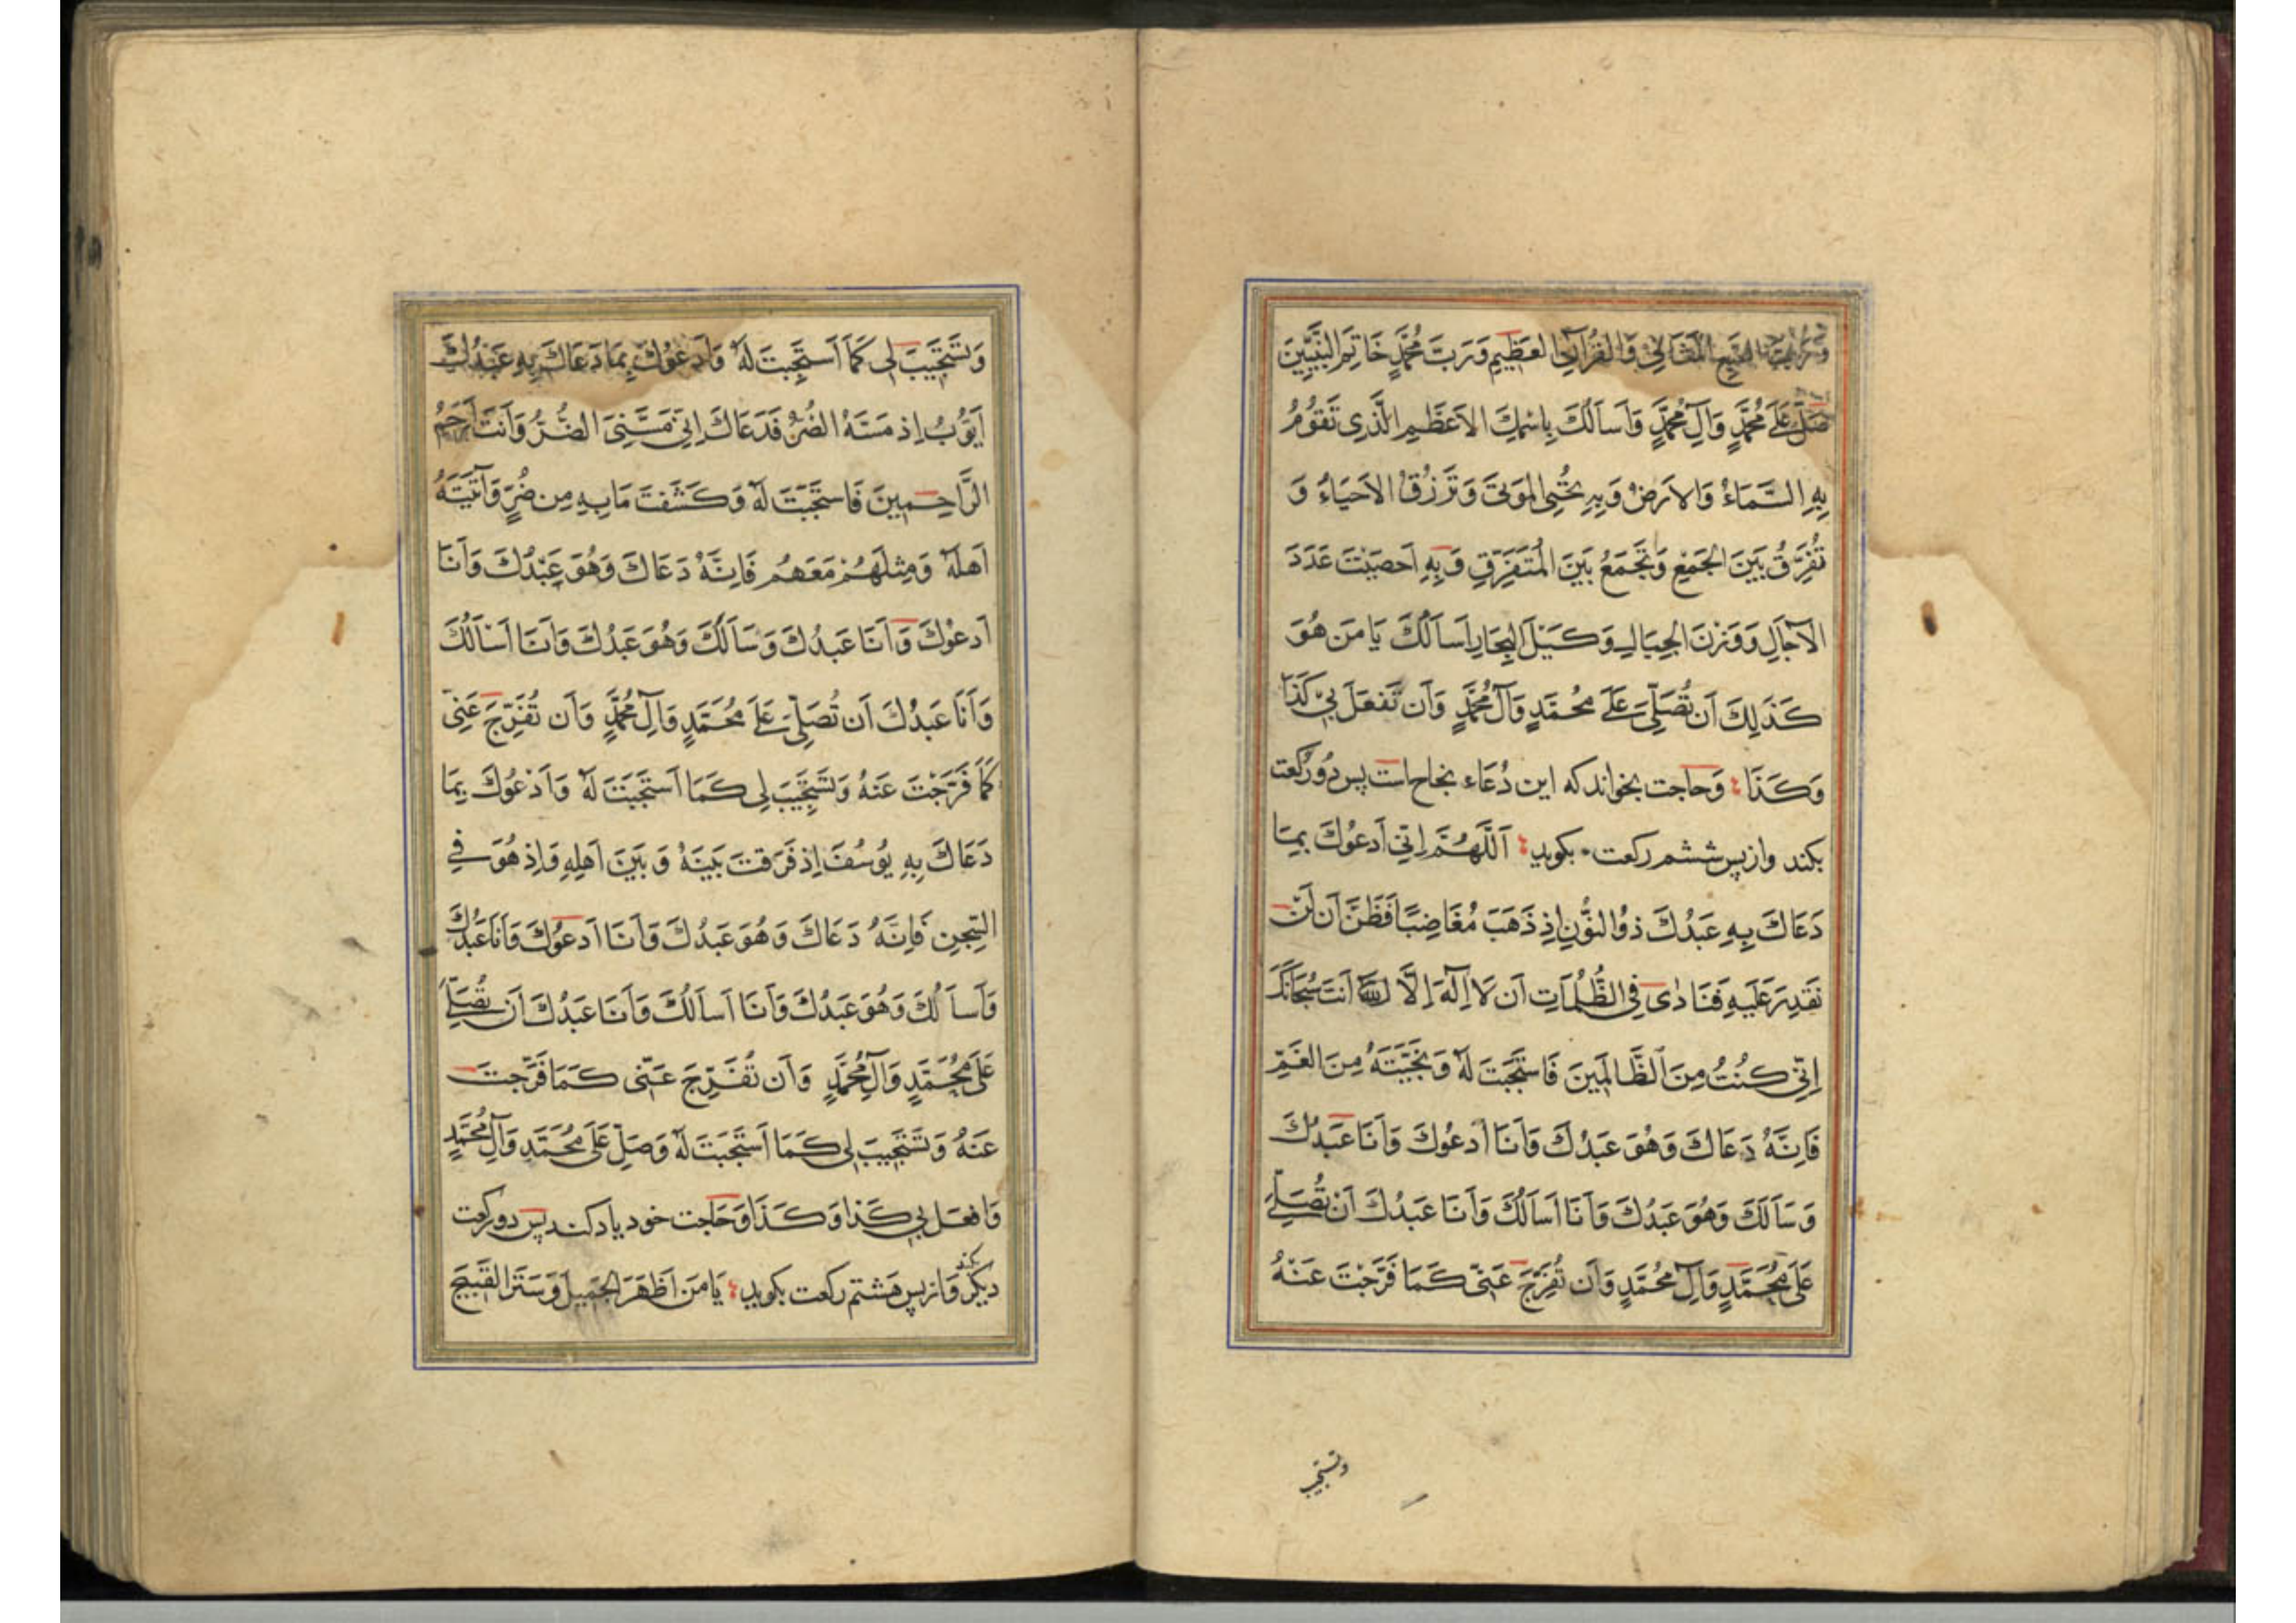 السَّبْعِ المَثَانِي وَالقُرْآنِ العَظِيمِ وَرَبَّ مُحَمَّدٍ خَاتِمِ النَّبِيِّينَ
صَلِّ عَلَى مُحَمَّدٍ وَآلِ مُحَمَّدٍ وَأَسأَلُكَ بِاسْمِكَ الاَعظَمِ الَّذِى تَقُومُ
بِهِ السَّمَاءُ وَالاَرضُ وَبِهِ تُحْيِى المَوتَى وَتَرزُقُ الاَحيَاءُ وَ
تُفَرِّقُ بَينَ الجَمْعِ وَتَجمَعُ بَينَ المُتَفَرِّقِ وَبِهِ اَحصَيْتَ عَدَدَ
الآجَالِ وَوَزنَ الجِبَالِ وَكَيْلَ البِحَارِ اَسأَلُكَ يَا مَن هُوَ
كَذَلِكَ اَن تُصَلِّىَ عَلَى مُحَمَّدٍ وَآلِ مُحَمَّدٍ وَاَن تَفعَلَ بِى كَذَا
وَكَذَا وَحاجت بخواند که این دُعَاء نجاح است پس دو رکعت
بکند واز پس ششم رکعت بکوید اَللَّهُمَّ اِنّى اَدعُوكَ بِمَا
دَعَاكَ بِهِ عَبدُكَ ذُو النُّونِ اِذ ذَهَبَ مُغَاضِبًا فَظَنَّ اَن لَن
نَقدِرَ عَلَيهِ فَنَادٰى فِى الظُّلُمَاتِ اَن لَا اِلَهَ اِلَّا اَنتَ سُبحَانَكَ
اِنّى كُنتُ مِنَ الظَّالِمِينَ فَاستَجَبتَ لَهُ وَنَجَّيتَهُ مِنَ الغَمِّ
فَاِنَّهُ دَعَاكَ وَهُوَ عَبدُكَ وَاَنَا اَدعُوكَ وَاَنَا عَبدُكَ
وَسَاَلَكَ وَهُوَ عَبدُكَ وَاَنَا اَسأَلُكَ وَاَنَا عَبدُكَ اَن تُصَلِّىَ
عَلَى مُحَمَّدٍ وَآلِ مُحَمَّدٍ وَاَن تُفَرِّجَ عَنّى كَمَا فَرَّجْتَ عَنْهُ
وتستجیب
وَتَستَجِيبَ لِى كَمَا اَستَجَبتَ لَهُ وَاَدعُوكَ بِمَا دَعَاكَ بِهِ عَبدُكَ
اَيُّوبُ اِذ مَسَّهُ الضُّرُّ فَدَعَاكَ اِنّى مَسَّنِىَ الضُّرُّ وَاَنتَ اَرحَمُ
الرَّاحِمِينَ فَاستَجَبتَ لَهُ وَكَشَفتَ مَا بِهِ مِن ضُرٍّ وَآتَيتَهُ
اَهلَهُ وَمِثلَهُم مَعَهُم فَاِنَّهُ دَعَاكَ وَهُوَ عَبْدُكَ وَاَنَا
اَدعُوكَ وَاَنَا عَبدُكَ وَسَاَلَكَ وَهُوَ عَبدُكَ وَاَنَا اَسْأَلُكَ
وَاَنَا عَبدُكَ اَن تُصَلِّىَ عَلَى مُحَمَّدٍ وَآلِ مُحَمَّدٍ وَاَن تُفَرِّجَ عَنّى
كَمَا فَرَّجْتَ عَنهُ وَتَستَجِيبَ لِى كَمَا اَستَجَبتَ لَهُ وَاَدْعُوكَ بِمَا
دَعَاكَ بِهِ يُوسُفَ اِذ فَرَقتَ بَينَهُ وَبَينَ اَهلِهِ وَاِذ هُوَ فِى
السِّجنِ فَاِنَّهُ دَعَاكَ وَهُوَ عَبدُكَ وَاَنَا اَدعُوكَ وَاَنَا عَبدُكَ
وَاَسأَلُكَ وَهُوَ عَبدُكَ وَاَنَا اَسأَلُكَ وَاَنَا عَبدُكَ اَن تُصَلِّىَ
عَلَى مُحَمَّدٍ وَآلِ مُحَمَّدٍ وَاَن تُفَرِّجَ عَنّى كَمَا فَرَّجتَ
عَنهُ وَتَستَجِيبَ لِى كَمَا اَستَجَبتَ لَهُ وَصَلِّ عَلَى مُحَمَّدٍ وَآلِ مُحَمَّدٍ
وَافعَل بِى كَذَا وَكَذَا وَحَاجت خود یاد کند پس دو رکعت
دیکر بکند وَاز پس هَشتم رکعت بکوید یَا مَن اَظهَرَ الجَمِيلَ وَسَتَرَ القَبِيحَ